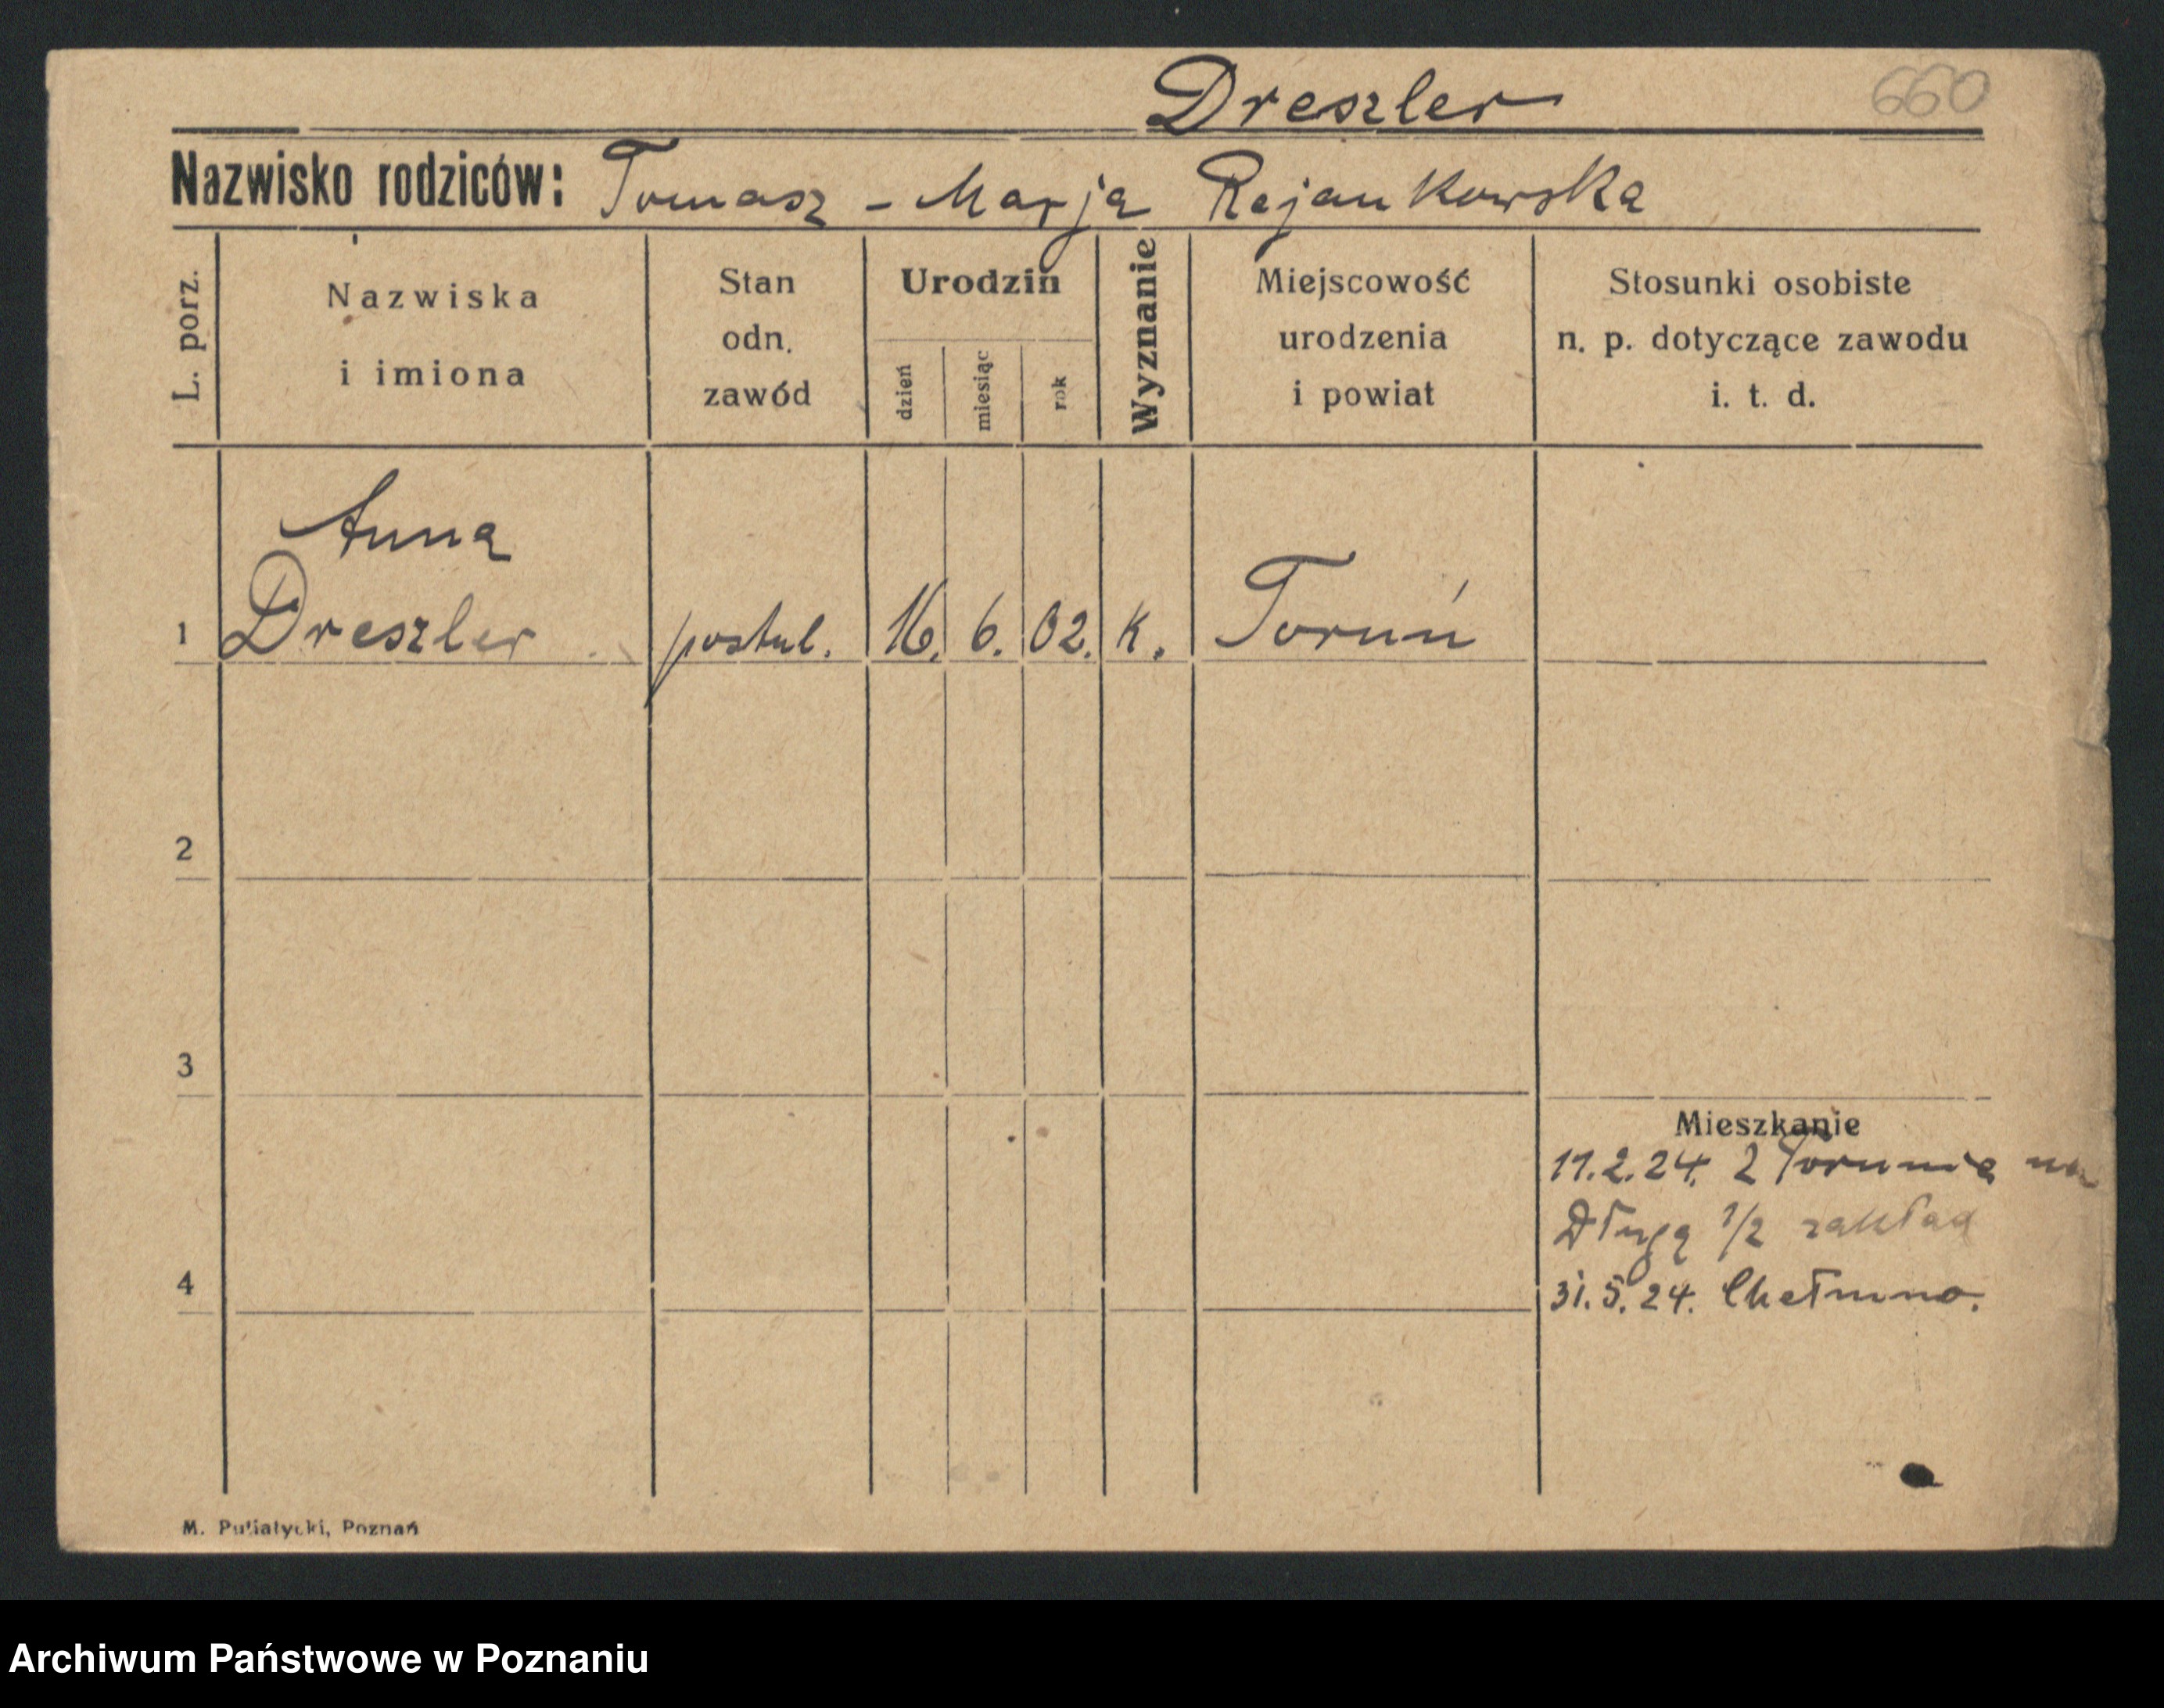 Dreszler 660
Nazwisko rodziców: Tomasz - Marja Rejankowska
L. porz.
Nazwiska
i imiona
Stan
odn.
zawód
Urodzin
dzień
miesiąc
rok
Wyznanie
Miejscowość
urodzenia
i powiat
Stosunki osobiste
n. p. dotyczące zawodu
i. t. d.
Anna
1 Dreszler postul. 16. 6. 02. K. Toruń
2
3
Mieszkanie
11.2.24. Z Torunia na
Długą 1/2 zakład
4
31.5.24. Chełmno.
M. Putiatycki, Poznań
Archiwum Państwowe w Poznaniu